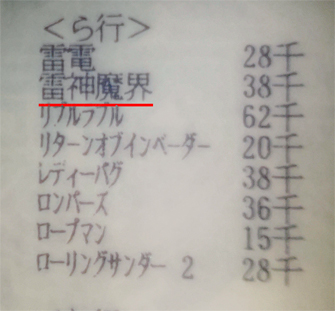 <ら行>
雷電 28千
雷神魔界 38千
リブルラブル 62千
リターンオブインベーダー 20千
レディーバグ 38千
ロンパーズ 36千
ロープマン 15千
ローリングサンダー 2 28千